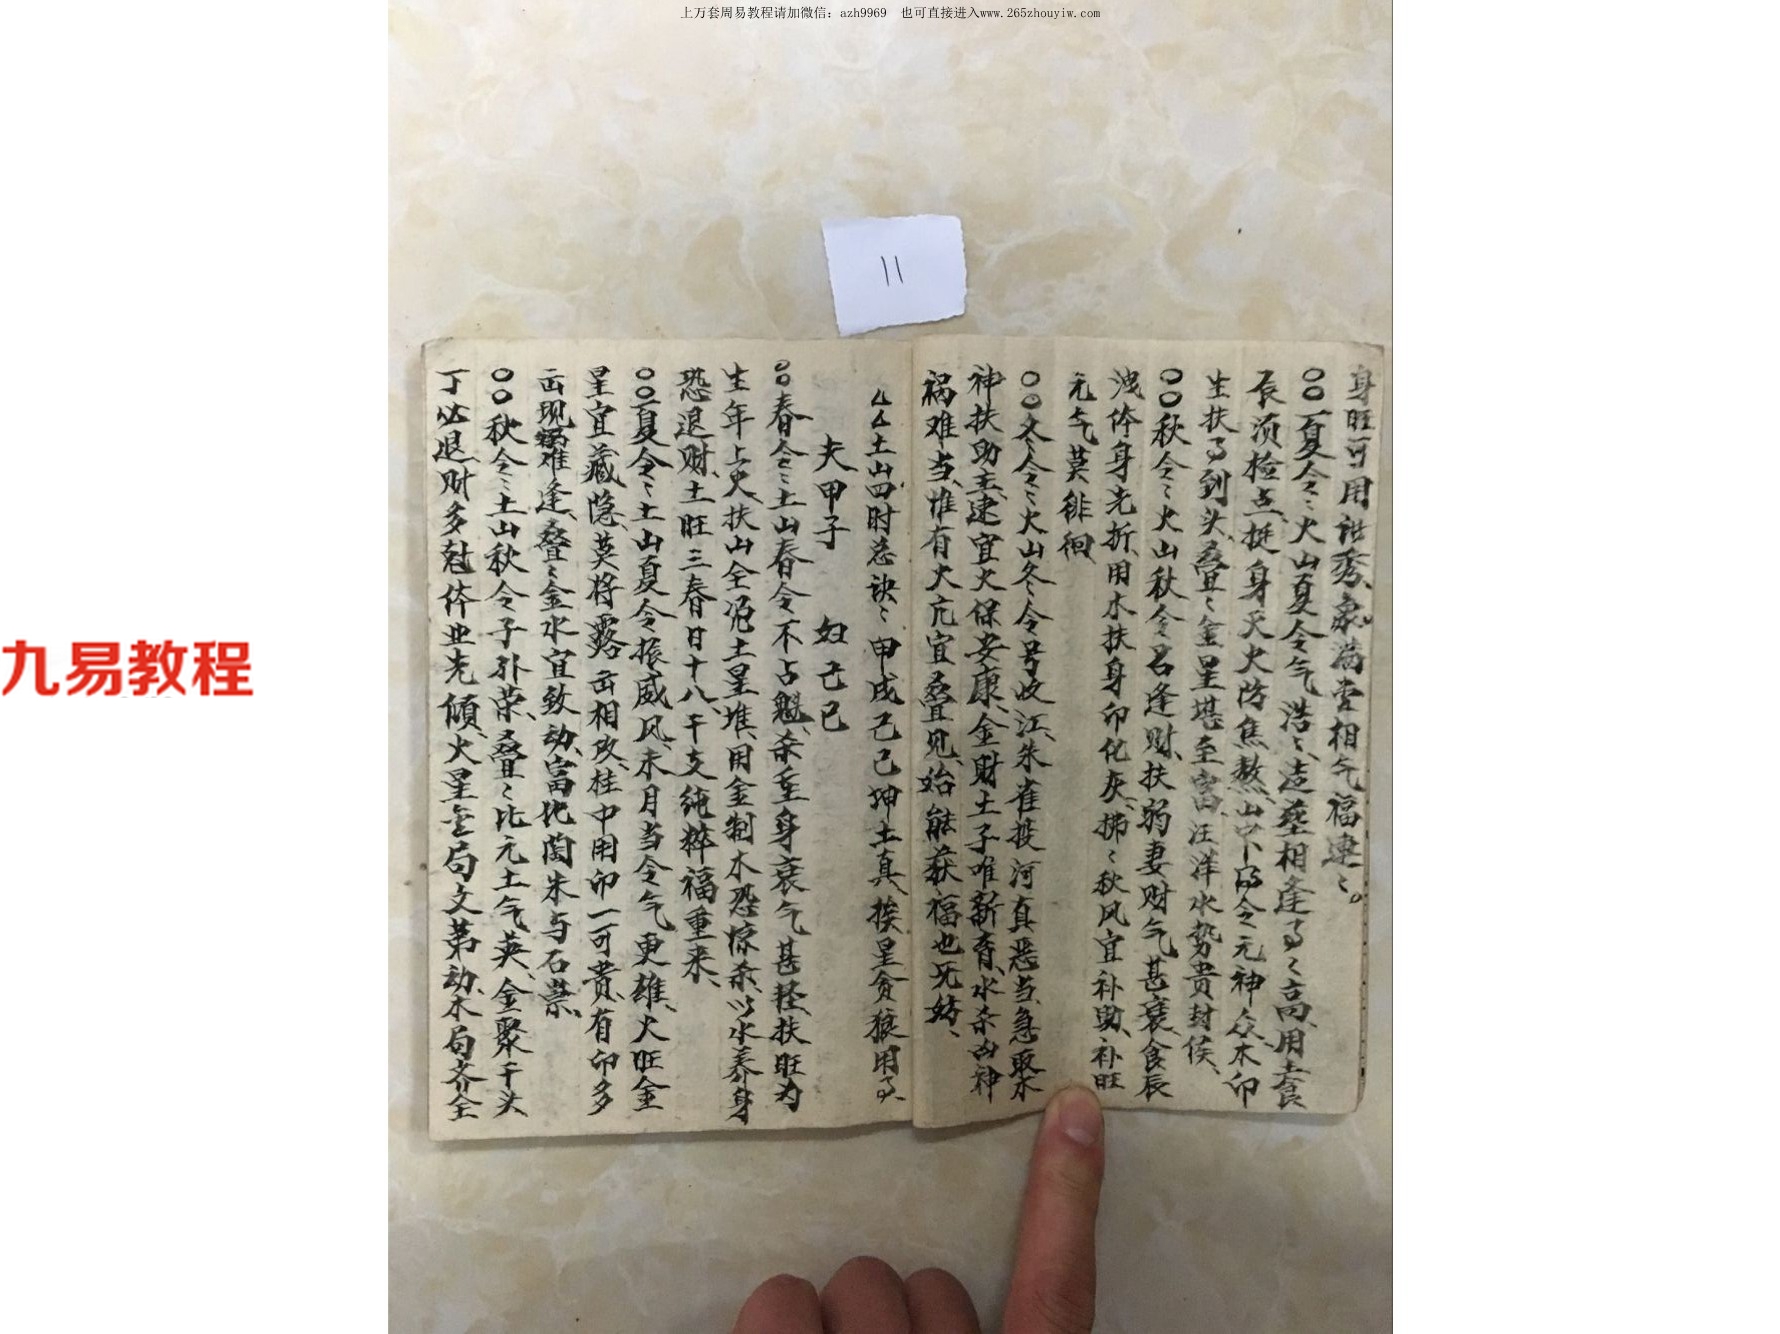 上万套周易教程请加微信：azh9969 也可直接进入www.265zhouyiw.com
九易教程
11
身旺可用 秀、 满堂相气福連〻。
〇〇夏令〻火山夏令气浩〻、 相逢 〻高、用土食
辰须检点、挺身灭火防焦熬、山中 令元神众、木印
生扶 到头、叠〻金星堪至富、汪洋水势贵封侯、
〇〇秋令〻火山秋令名逢财、扶弱妻财气甚衰、食辰
洩体身先折、用木扶身印化灰、拂〻秋风宜补助、补旺
元气莫徘徊
〇〇冬令〻火山冬〻令号收江、朱雀投河真恶当、急取木
神扶助主、建宜火保安康、金财土子唯新育、水杀凶神
祸难当、惟有火亢宜叠见、始能获福也无妨、
厶厶土山四时总诀〻甲戌己巳坤土真、挨星贪狼用
夫甲子 妇己巳
〇〇春令〻土山春令不占魁、杀重身衰气甚轻、扶旺为
生年上火、扶山全 土星堆、用金制木恐惊杀、以水养身
恐退财、土旺三春日十八、干支纯粹福重来、
〇〇夏令〻土山夏令振威风、未月当令气更雄、火旺金
星宜藏隐、莫将露 相攻、柱中用印一可贵、有印多
现祸难逢、叠〻金水宜致动、富比陶朱与石崇、
〇〇秋令〻土山秋令子外荣、叠〻比元土气英、金聚干头
丁必退财多尅体业先倾、火星 局文第动、木局齐全